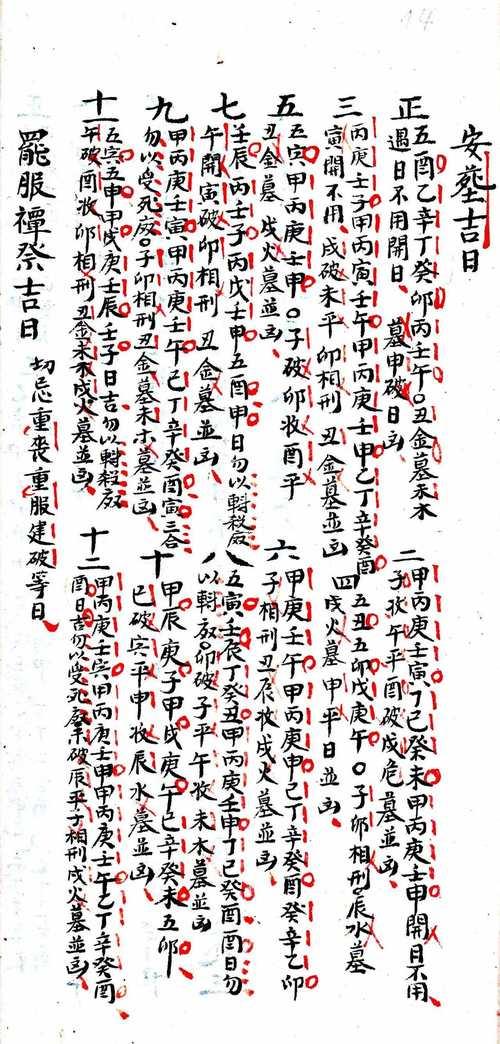 安塟吉日
正
五酉乙辛丁癸卯丙壬午〇丑金墓未木
遇日不用開日、墓申破日凶、
二
甲丙庚壬寅、丁己癸未甲丙庚壬申開日不用
子收午平酉破戍危墓並凶、
三
丙庚壬子甲丙寅壬午甲丙庚壬申乙丁辛癸酉
寅開不用、戍破未平卯相刑丑金墓並凶
四
五丑五卯戊庚午〇子卯相刑辰水墓
戍火墓申平日並凶、
五
五寅甲丙庚壬申〇子破卯收酉平
丑金墓戍火墓並凶、
六
甲庚壬午甲丙庚申己丁辛癸酉癸辛乙卯
子相刑丑辰收戍火墓並凶、
七
壬辰丙壬子丙戊壬申五酉申日勿以
午開寅破卯相刑丑金墓並凶、
八
五寅壬辰丁癸丑甲丙庚壬申丁己癸酉酉日勿
卯破子平午收未木墓並凶
九
甲丙庚壬寅、甲丙庚壬午己丁辛癸酉寅三合
勿以受死废〇子卯相刑丑金墓未木墓並凶、
十
甲辰庚子甲戍庚午己辛癸未五卯
巳破寅平申收辰水墓並凶
十一
五寅五申甲戍庚壬辰壬子日吉勿以
午破酉收卯相刑丑金未木戍火墓並凶、
十二
甲丙庚壬寅甲丙庚壬申甲丙庚壬午乙丁辛癸酉
酉日吉勿以受死破辰平子相刑戍火墓並凶、
罷服禫祭吉日
切忌重喪重服建破等日、
14